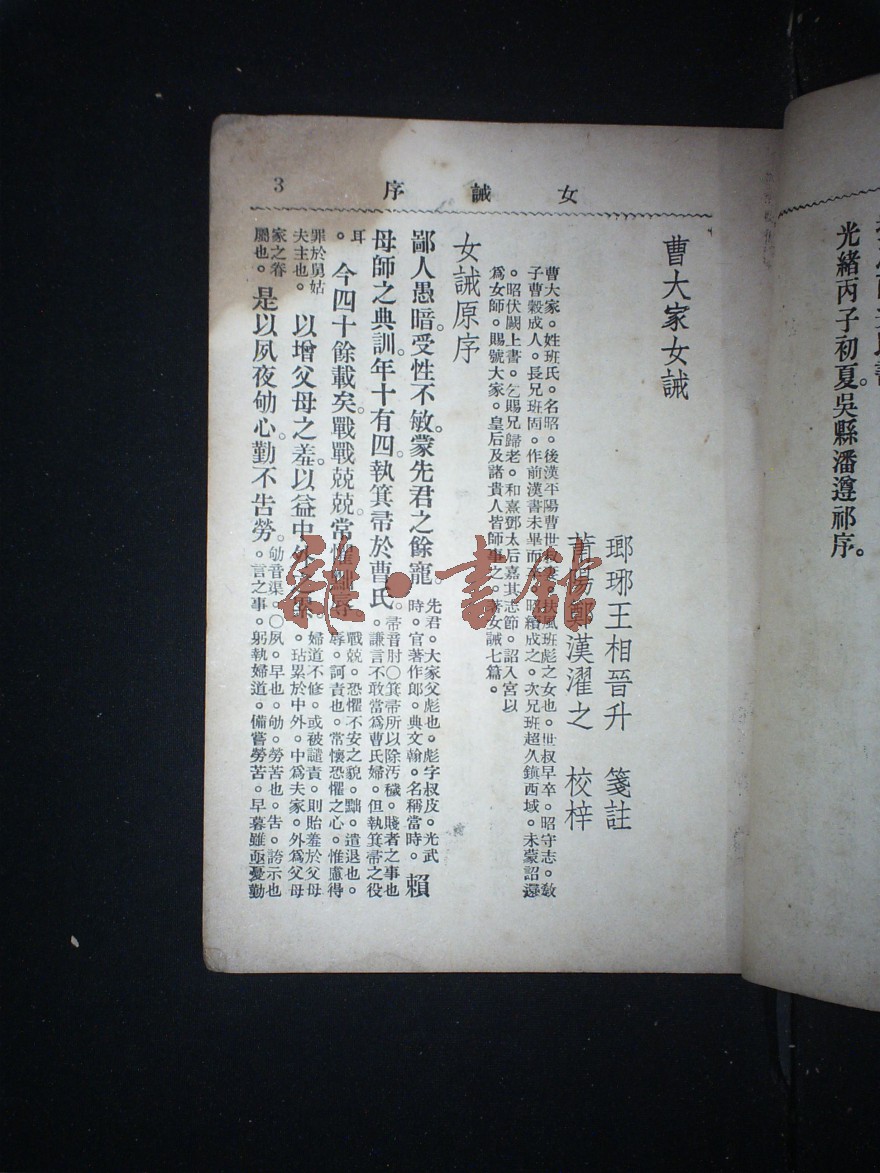 光緒丙子初夏。吳縣潘遵祁序。
女誡序 3
曹大家女誡
瑯琊王相晉升 箋註
莆陽鄭漢濯之 校梓
曹大家。姓班氏。名昭。後漢平陽曹世叔妻。扶風班彪之女也。世叔早卒。昭守志。敎
子曹穀成人。長兄班固。作前漢書未畢而卒。昭續成之。次兄班超久鎮西域。未蒙詔還
。昭伏闕上書。乞賜兄歸老。和熹鄧太后嘉其志節。詔入宮以
爲女師。賜號大家。皇后及諸貴人皆師事之。著女誡七篇。
女誡原序
鄙人愚暗。受性不敏。蒙先君之餘寵。先君。大家父彪也。彪字叔皮。光武
時。官著作郎。典文翰。名稱當時。賴
母師之典訓。年十有四。執箕帚於曹氏。帚音肘〇箕帚所以除汚穢。賤者之事也
。謙言不敢當爲曹氏婦。但執箕帚之役
耳
。今四十餘載矣。戰戰兢兢。常懼黜辱。戰兢。恐懼不安之貌。黜。遣退也。
辱。訶責也。常懷恐懼之心。惟慮得
罪於舅姑
夫主也。以增父母之羞。以益中外之累。婦道不修。或被譴責。則貽羞於父母
。玷累於中外。中爲夫家。外爲父母
家之眷
屬也。是以夙夜劬心。勤不告勞。劬音渠。〇夙。早也。劬。勞苦也。告。誇示也
。言之事。躬執婦道。備嘗勞苦。早暮雖亟憂勤
雜·書館